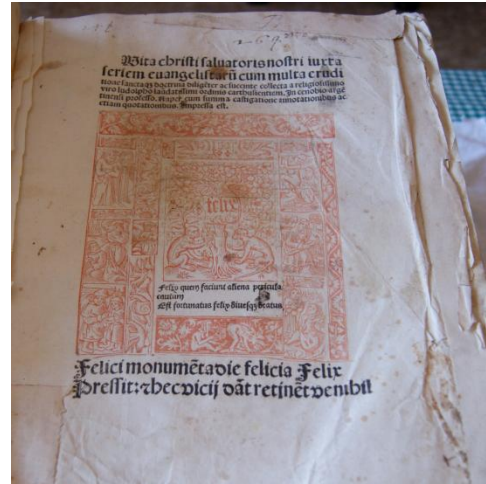 Vita christi saluatoris nostri iuxta
seriem euangelistarū cum multa erudi
tione sancta doctrina diligēter ac lucente collecta a religiosissimo
viro ludolpho ordinis carthusiensium. In cenobio argē
tinensi professo. cum summa castigatione annotationibus ac
etiam quotationibus. Impressa est.
felix
Felix quem faciunt aliena pericula
cautum
Est fortunatus felix diuesq beatus
Felici monumēta die felicia Felix
Pressit: hec vicij dāt retinēt ve nihil